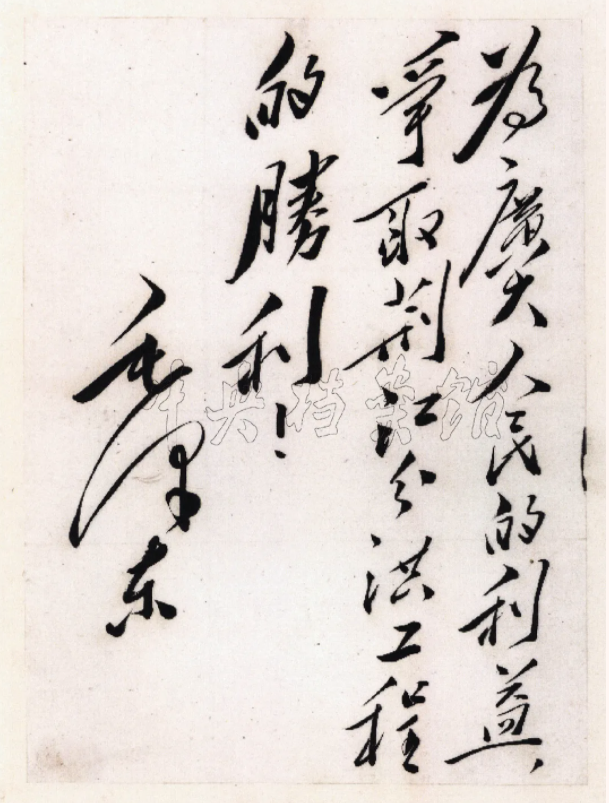 为廣大人民的利益,
爭取荆江分洪工程
的勝利!
毛泽东
中央档案馆